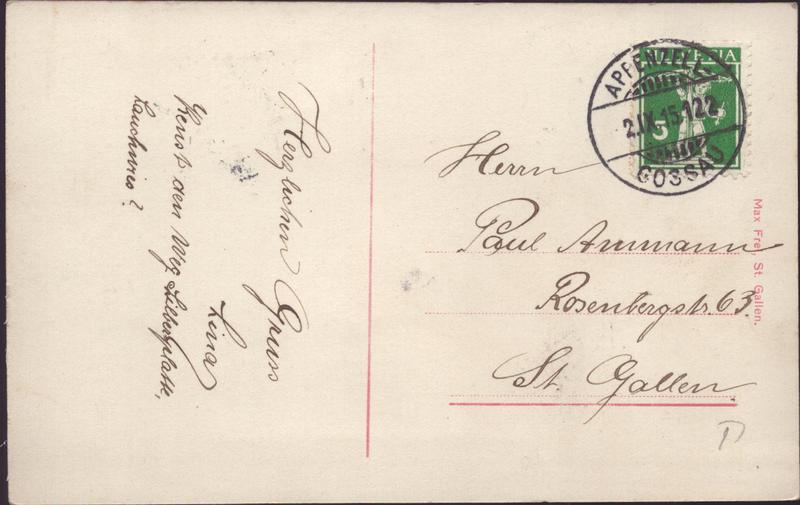 Herzlichen Gruss
Lina
Kenst den Weg Silberplatte,
Lauchwies?
HELVETIA
5
APPENZELL-
2.IX.15-122
GOSSAU
Herrn
Paul Ammann
Rosenbergstr. 63
St. Gallen
Max Frei, St. Gallen.